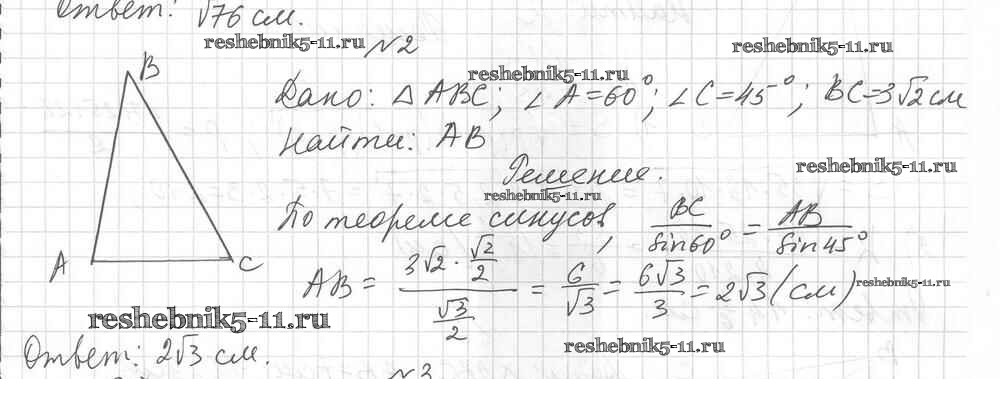 Ответ: √76 см.
reshebnik5-11.ru
№2
reshebnik5-11.ru
reshebnik5-11.ru
B
Дано: △ABC; ∠A=60°; ∠C=45°; BC=3√2 см
Найти: AB
reshebnik5-11.ru
Решение.
reshebnik5-11.ru
По теореме синусов, BC/sin60° = AB/sin45°
A C
AB = (3√2 · √2/2)/(√3/2) = 6/√3 = 6√3/3 = 2√3 (см)
reshebnik5-11.ru
reshebnik5-11.ru
reshebnik5-11.ru
Ответ: 2√3 см.
№3